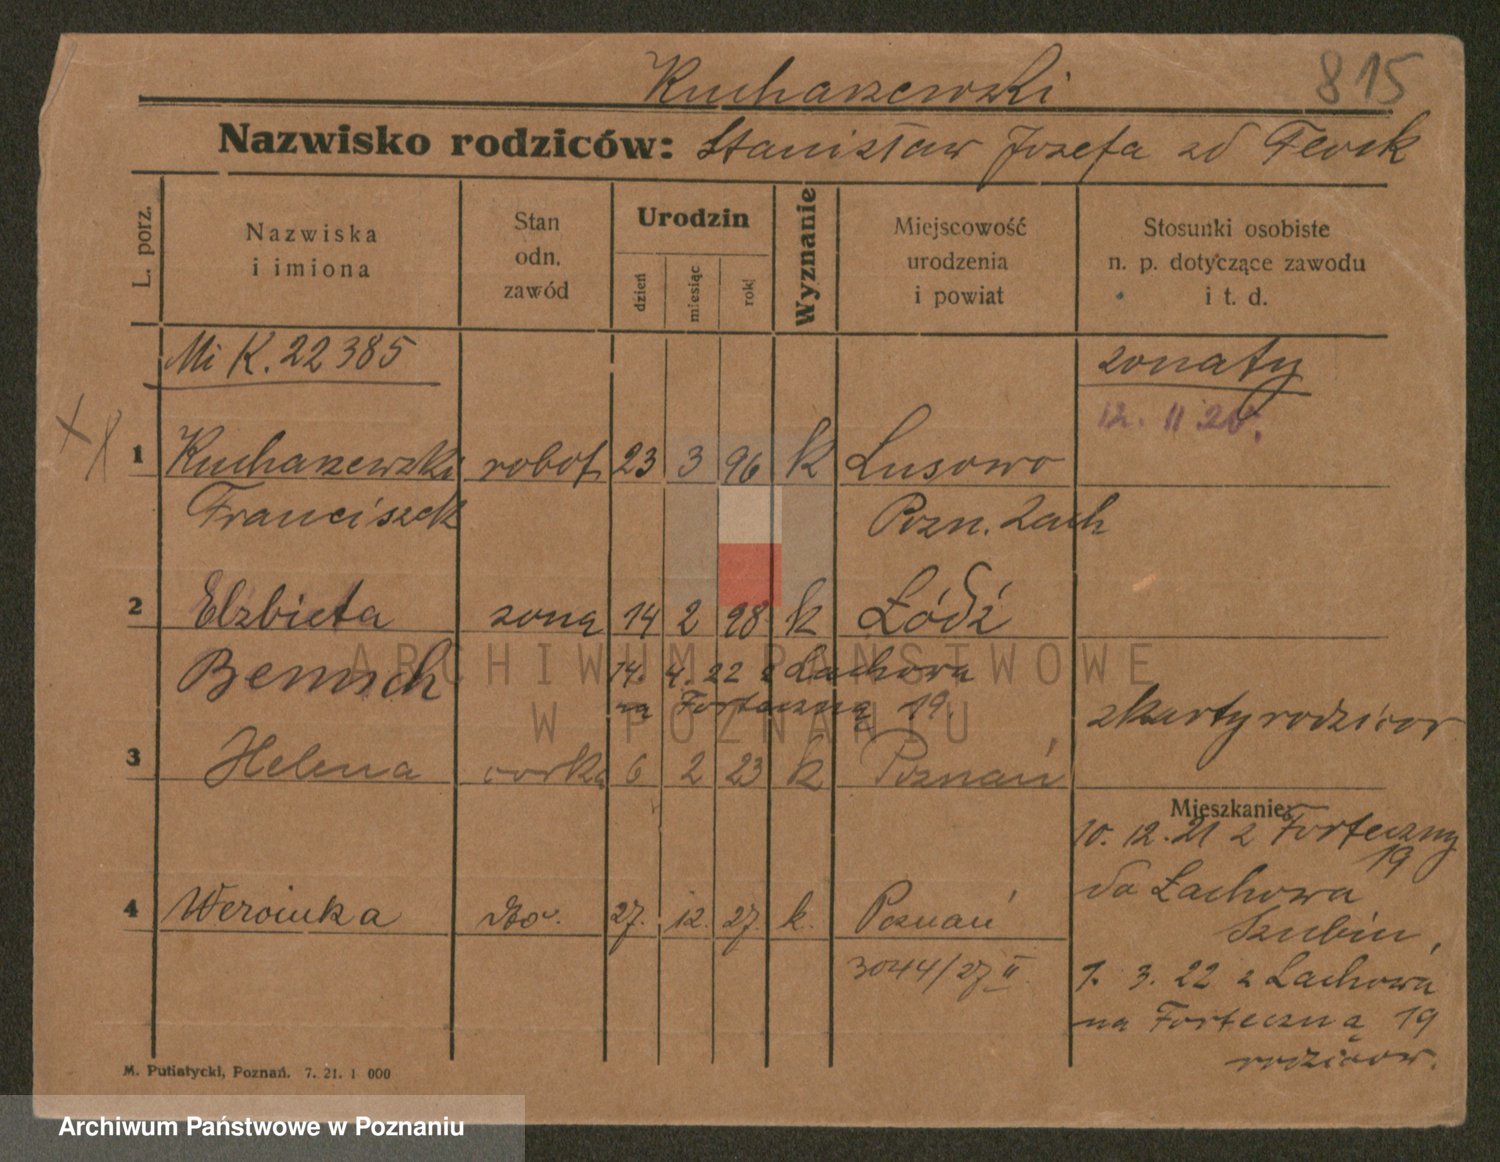 Kucharzewski 815
Nazwisko rodziców: Stanisław Józefa zd Flock
L. porz.
Nazwiska
i imiona
Stan
odn.
zawód
Urodzin
dzień
miesiąc
rok
Wyznanie
Miejscowość
urodzenia
i powiat
Stosunki osobiste
n. p. dotyczące zawodu
i t. d.
Mi K. 22385 zonaty
12. II 20.
1 Kucharzewski robot 23 3 96 k Lusowo
Franciszek Pozn. Zach
2 Elzbieta zona 14 2 98 k Łódź
Benisch 14. 4. 22 z Lachowa
na Forteczną 19.
z karty rodziców
3 Helena corka 6 2 23 k Poznań
Mieszkanie:
10. 12. 21 z Forteczny
19
do Łachowa
Szubin,
4 Weronika dto. 27. 12. 27. k. Poznań
3044/27 II
1. 3. 22 z Lachowa
na Forteczną 19
rodziców.
M. Putiatycki, Poznań. 7. 21. 1 000
ARCHIWUM PAŃSTWOWE
W POZNANIU
Archiwum Państwowe w Poznaniu